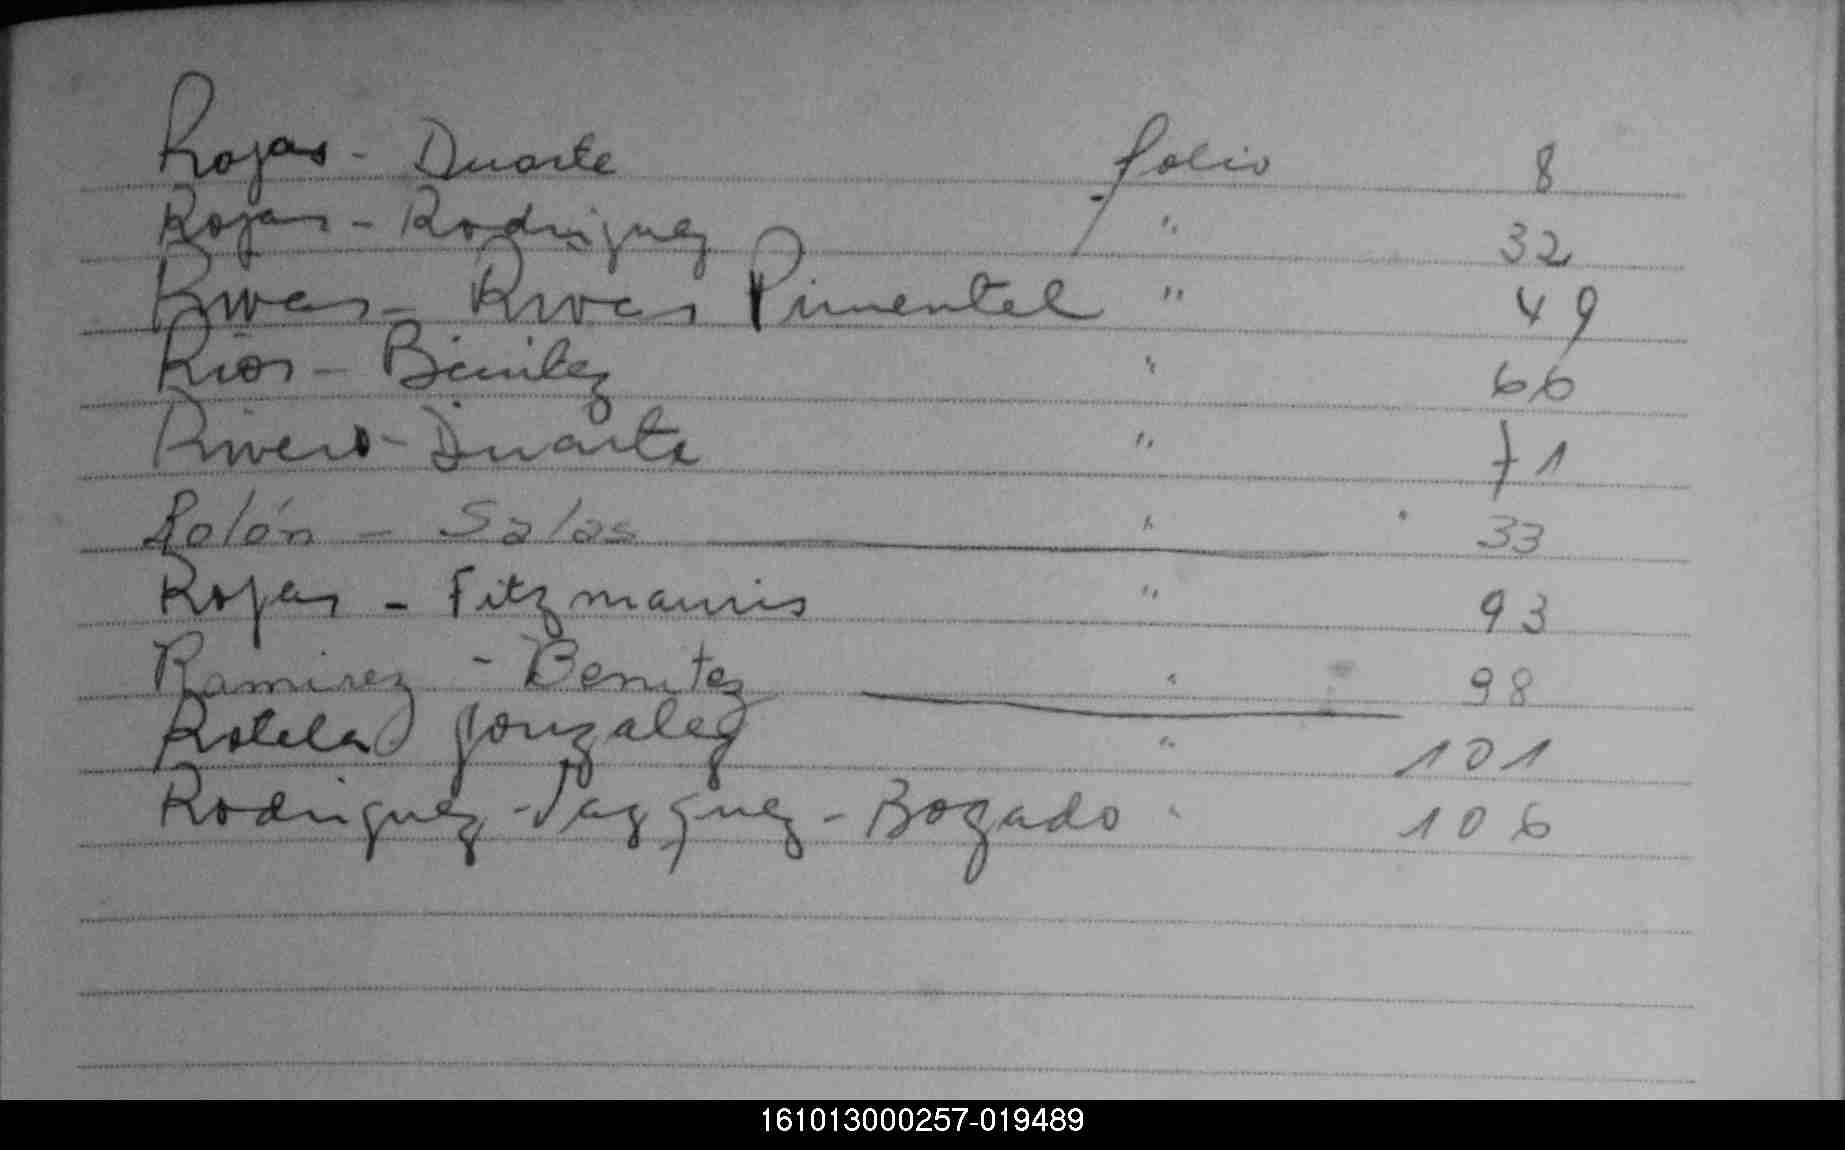 Rojas - Duarte folio 8
Rojas - Rodriguez " 32
Rivas - Rivas Pimentel " 49
Rios - Benitez " 66
Rivero - Duarte " 71
Rolón - Salas " 33
Rojas - Fitzmauris " 93
Ramirez - Benitez " 98
Rotela Gonzalez " 101
Rodriguez - Vazquez - Bogado " 106
161013000257-019489